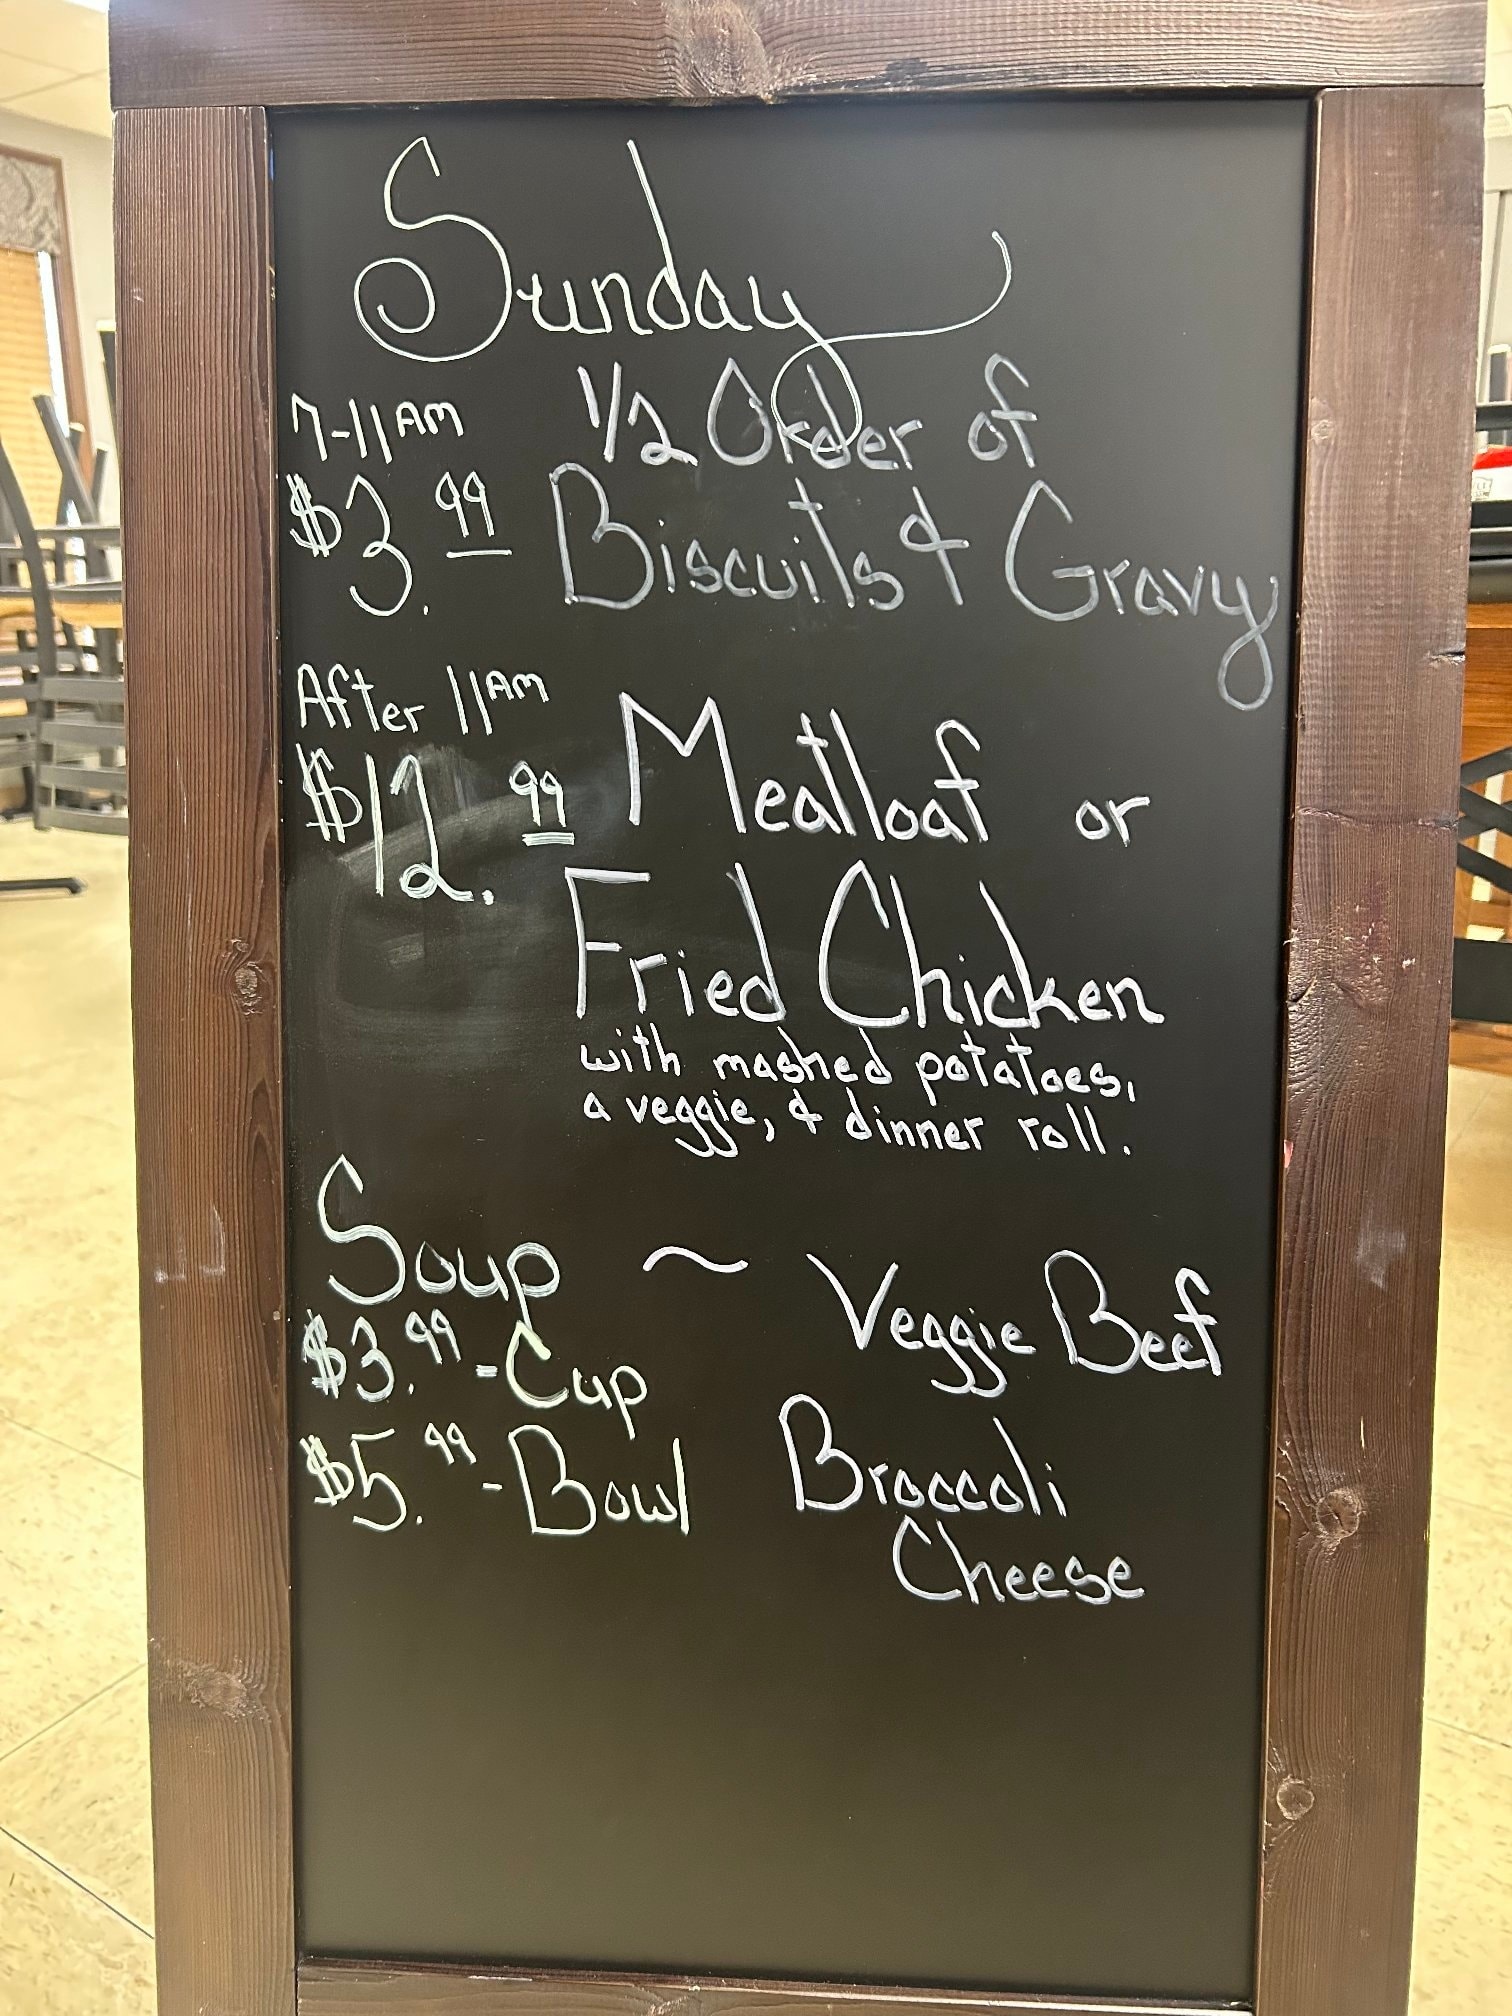 Sunday
7-11AM 1/2 Order of
$3.99 Biscuits & Gravy
After 11AM
$12.99 Meatloaf or
Fried Chicken
with mashed potatoes,
a veggie, & dinner roll.
Soup ~ Veggie Beef
$3.99-Cup
$5.99-Bowl Broccoli
Cheese